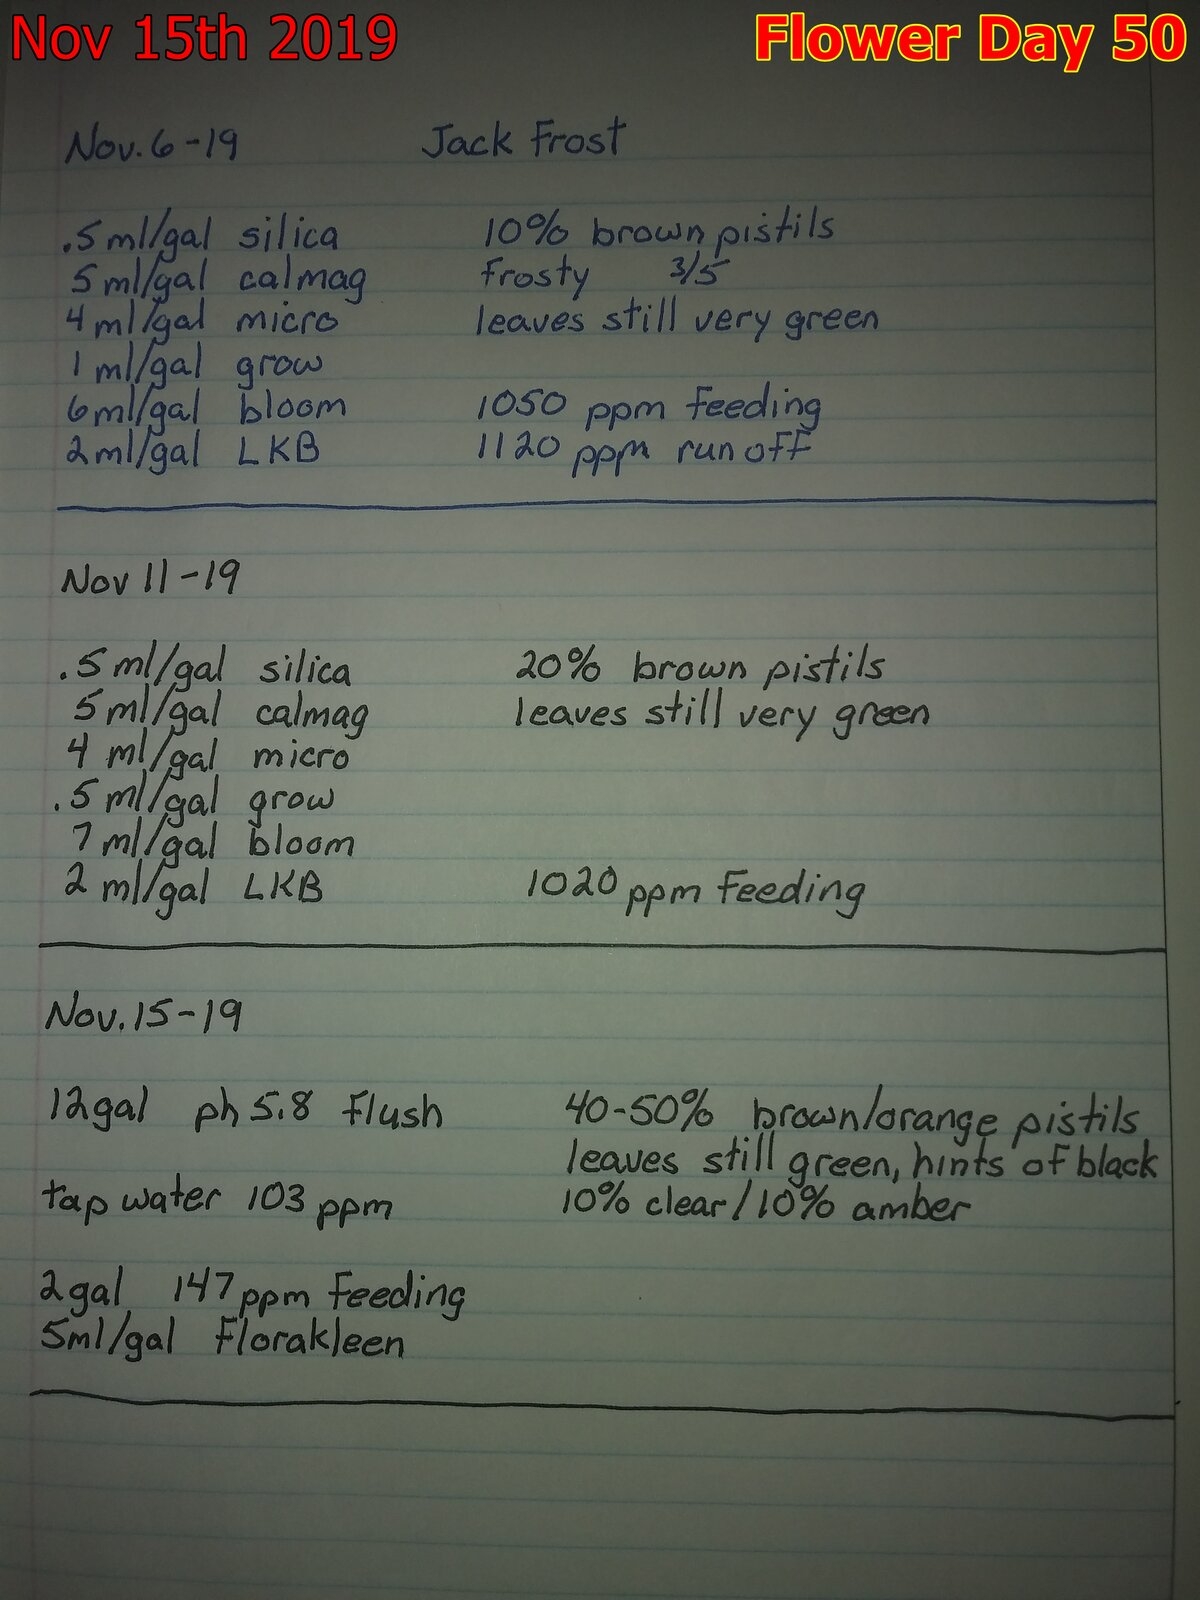 Nov 15th 2019
Flower Day 50
Nov. 6-19 Jack Frost
.5 ml/gal silica 10% brown pistils
5 ml/gal calmag frosty 3/5
4 ml/gal micro leaves still very green
1 ml/gal grow
6 ml/gal bloom 1050 ppm feeding
2 ml/gal LKB 1120 ppm run off
Nov 11-19
.5 ml/gal silica 20% brown pistils
5 ml/gal calmag leaves still very green
4 ml/gal micro
.5 ml/gal grow
7 ml/gal bloom
2 ml/gal LKB 1020 ppm feeding
Nov. 15-19
12gal ph 5.8 flush 40-50% brown/orange pistils
leaves still green, hints of black
tap water 103 ppm 10% clear/10% amber
2gal 147 ppm feeding
5ml/gal Florakleen